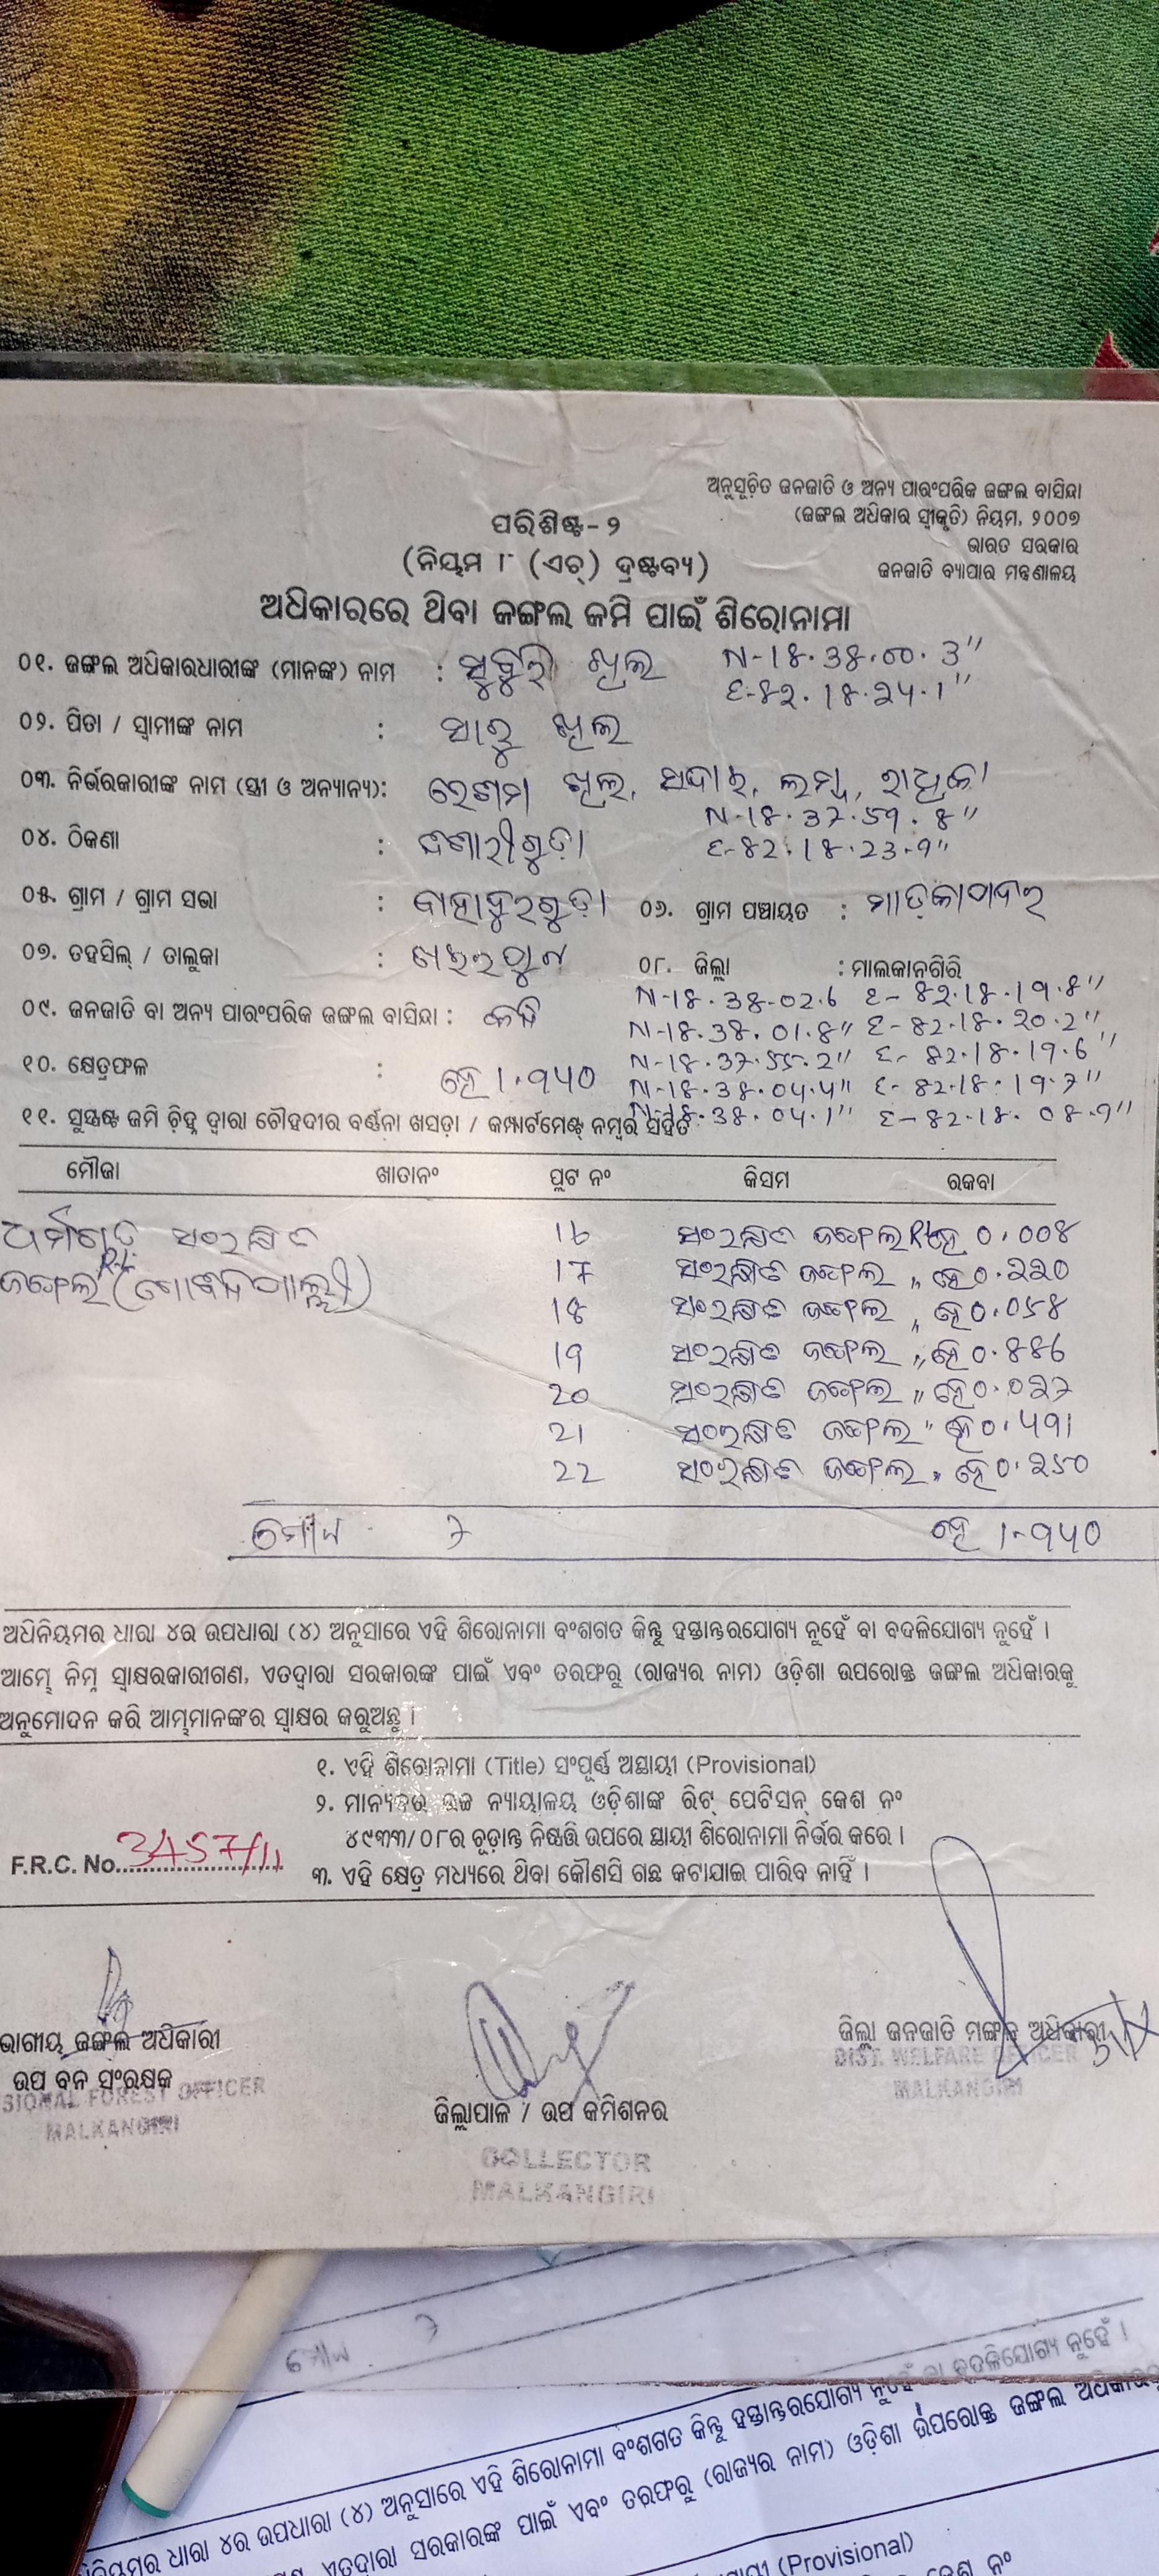 ଅନୁସୂଚିତ ଜନଜାତି ଓ ଅନ୍ୟ ପାରଂପରିକ ଜଙ୍ଗଲ ବାସିନ୍ଦା
(ଜଙ୍ଗଲ ଅଧିକାର ସ୍ୱୀକୃତି) ନିୟମ, ୨୦୦୭
ଭାରତ ସରକାର
ଜନଜାତି ବ୍ୟାପାର ମନ୍ତ୍ରଣାଳୟ
ପରିଶିଷ୍ଟ - ୨
(ନିୟମ ୮ (ଏଚ୍) ଦ୍ରଷ୍ଟବ୍ୟ)
ଅଧିକାରରେ ଥିବା ଜଙ୍ଗଲ ଜମି ପାଇଁ ଶିରୋନାମା
୦୧. ଜଙ୍ଗଲ ଅଧିକାରଧାରୀଙ୍କ (ମାନଙ୍କ) ନାମ : ଖିଲ N-18.38.00.3"
E-82.18.24.1"
୦୨. ପିତା / ସ୍ୱାମୀଙ୍କ ନାମ : ଖିଲ
୦୩. ନିର୍ଭରକାରୀଙ୍କ ନାମ (ସ୍ତ୍ରୀ ଓ ଅନ୍ୟାନ୍ୟ): ରେଶମା ଖିଲ, ରାଧିକା
N-18.37.59.8"
୦୪. ଠିକଣା : E-82.18.23.9"
୦୫. ଗ୍ରାମ / ଗ୍ରାମ ସଭା : ବାହାଦୁରଗୁଡ଼ା ୦୬. ଗ୍ରାମ ପଞ୍ଚାୟତ : ମାଡ଼କାପଦର
୦୭. ତହସିଲ୍ / ତାଲୁକା : ଖଇରପୁଟ ୦୮. ଜିଲ୍ଲା : ମାଲକାନଗିରି
N-18.38-02.6 E-82.18.19.8"
୦୯. ଜନଜାତି ବା ଅନ୍ୟ ପାରଂପରିକ ଜଙ୍ଗଲ ବାସିନ୍ଦା : N-18.38.01.8" E-82.18.20.2"
N-18.37.55.2" E-82.18.19.6"
୧୦. କ୍ଷେତ୍ରଫଳ : ହେ 1.940 N-18.38.04.4" E-82.18.19.7"
N-18.38.04.1" E-82.18.08.9"
୧୧. ସୁସ୍ପଷ୍ଟ ଜମି ଚିହ୍ନ ଦ୍ୱାରା ଚୌହଦୀର ବର୍ଣ୍ଣନା ଖସଡ଼ା / କମ୍ପାର୍ଟମେଣ୍ଟ୍ ନମ୍ବର ସହିତ
ମୌଜା ଖାତାନଂ ପ୍ଲଟ ନଂ କିସମ ରକବା
ସଂରକ୍ଷିତ 16 ସଂରକ୍ଷିତ ଜଙ୍ଗଲ ହେ 0.008
ଜଙ୍ଗଲ 17 ସଂରକ୍ଷିତ ଜଙ୍ଗଲ " ହେ 0.220
18 ସଂରକ୍ଷିତ ଜଙ୍ଗଲ " ହେ 0.058
19 ସଂରକ୍ଷିତ ଜଙ୍ଗଲ " ହେ 0.886
20 ସଂରକ୍ଷିତ ଜଙ୍ଗଲ " ହେ 0.027
21 ସଂରକ୍ଷିତ ଜଙ୍ଗଲ " ହେ 0.491
22 ସଂରକ୍ଷିତ ଜଙ୍ଗଲ " ହେ 0.250
ମୋଟ 7 ହେ 1.940
ଅଧିନିୟମର ଧାରା ୪ର ଉପଧାରା (୪) ଅନୁସାରେ ଏହି ଶିରୋନାମା ବଂଶଗତ କିନ୍ତୁ ହସ୍ତାନ୍ତରଯୋଗ୍ୟ ନୁହେଁ ବା ବଦଳିଯୋଗ୍ୟ ନୁହେଁ ।
ଆମ୍ଭେ ନିମ୍ନ ସ୍ୱାକ୍ଷରକାରୀଗଣ, ଏତଦ୍ୱାରା ସରକାରଙ୍କ ପାଇଁ ଏବଂ ତରଫରୁ (ରାଜ୍ୟର ନାମ) ଓଡ଼ିଶା ଉପରୋକ୍ତ ଜଙ୍ଗଲ ଅଧିକାରକୁ
ଅନୁମୋଦନ କରି ଆମ୍ଭମାନଙ୍କର ସ୍ୱାକ୍ଷର କରୁଅଛୁ ।
୧. ଏହି ଶିରୋନାମା (Title) ସଂପୂର୍ଣ୍ଣ ଅସ୍ଥାୟୀ (Provisional)
୨. ମାନ୍ୟବର ଉଚ୍ଚ ନ୍ୟାୟାଳୟ ଓଡ଼ିଶାଙ୍କ ରିଟ୍ ପେଟିସନ୍ କେଶ ନଂ
୪୯୩୩/୦୮ର ଚୂଡ଼ାନ୍ତ ନିଷ୍ପତ୍ତି ଉପରେ ସ୍ଥାୟୀ ଶିରୋନାମା ନିର୍ଭର କରେ ।
F.R.C. No. 3457/11
୩. ଏହି କ୍ଷେତ୍ର ମଧ୍ୟରେ ଥିବା କୌଣସି ଗଛ କଟାଯାଇ ପାରିବ ନାହିଁ ।
ଭାଗୀୟ ଜଙ୍ଗଲ ଅଧିକାରୀ
ଉପ ବନ ସଂରକ୍ଷକ
SIONAL FOREST OFFICER
MALKANGIRI
ଜିଲ୍ଲାପାଳ / ଉପ କମିଶନର
COLLECTOR
MALKANGIRI
ଜିଲ୍ଲା ଜନଜାତି ମଙ୍ଗଳ ଅଧିକାରୀ
DIST. WELFARE OFFICER
MALKANGIRI
ମୋଟ 7
ଧାରା ୪ର ଉପଧାରା (୪) ଅନୁସାରେ ଏହି ଶିରୋନାମା ବଂଶଗତ କିନ୍ତୁ ହସ୍ତାନ୍ତରଯୋଗ୍ୟ ନୁହେଁ ବା ବଦଳିଯୋଗ୍ୟ ନୁହେଁ ।
ଏତଦ୍ୱାରା ସରକାରଙ୍କ ପାଇଁ ଏବଂ ତରଫରୁ (ରାଜ୍ୟର ନାମ) ଓଡ଼ିଶା ଉପରୋକ୍ତ ଜଙ୍ଗଲ
(Provisional)